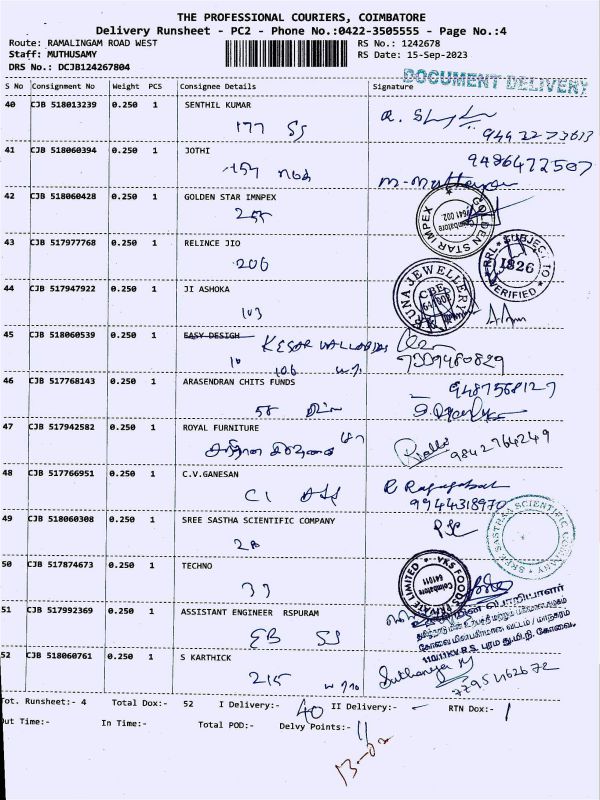 THE PROFESSIONAL COURIERS, COIMBATORE
Delivery Runsheet - PC2 - Phone No.:0422-3505555 - Page No.:4
Route: RAMALINGAM ROAD WEST RS No.: 1242678
Staff: MUTHUSAMY RS Date: 15-Sep-2023
DRS No.: DCJB124267804
DOCUMENT DELIVERY
S No Consignment No Weight PCS Consignee Details Signature
40 CJB 518013239 0.250 1 SENTHIL KUMAR
177 SS
41 CJB 518060394 0.250 1 JOTHI
9486472507
42 CJB 518060428 0.250 1 GOLDEN STAR IMNPEX
255
GOLDEN STAR IMPEX Coimbatore 641 002
43 CJB 517977768 0.250 1 RELINCE JIO
206
RRL SUBJECT TO 1826 VERIFIED
44 CJB 517947922 0.250 1 JI ASHOKA
103
ARUNA JEWELLERY CBE
45 CJB 518060539 0.250 1 EASY DESIGH
KESAR
10 106
7309480829
46 CJB 517768143 0.250 1 ARASENDRAN CHITS FUNDS
58
9487568127
47 CJB 517942582 0.250 1 ROYAL FURNITURE
9842764249
48 CJB 517766951 0.250 1 C.V.GANESAN
C1
9944318970
49 CJB 518060308 0.250 1 SREE SASTHA SCIENTIFIC COMPANY
28
SREE SASTHA SCIENTIFIC COMPANY
50 CJB 517874673 0.250 1 TECHNO
33
VKS FOODS PRIVATE LIMITED Coimbatore 641011
51 CJB 517992369 0.250 1 ASSISTANT ENGINEER RSPURAM
EB SS
52 CJB 518060761 0.250 1 S KARTHICK
215
Suthanya
Tot. Runsheet:- 4 Total Dox:- 52 I Delivery:- 40 II Delivery:- - RTN Dox:- 1
Out Time:- In Time:- Total POD:- Delvy Points:- 11